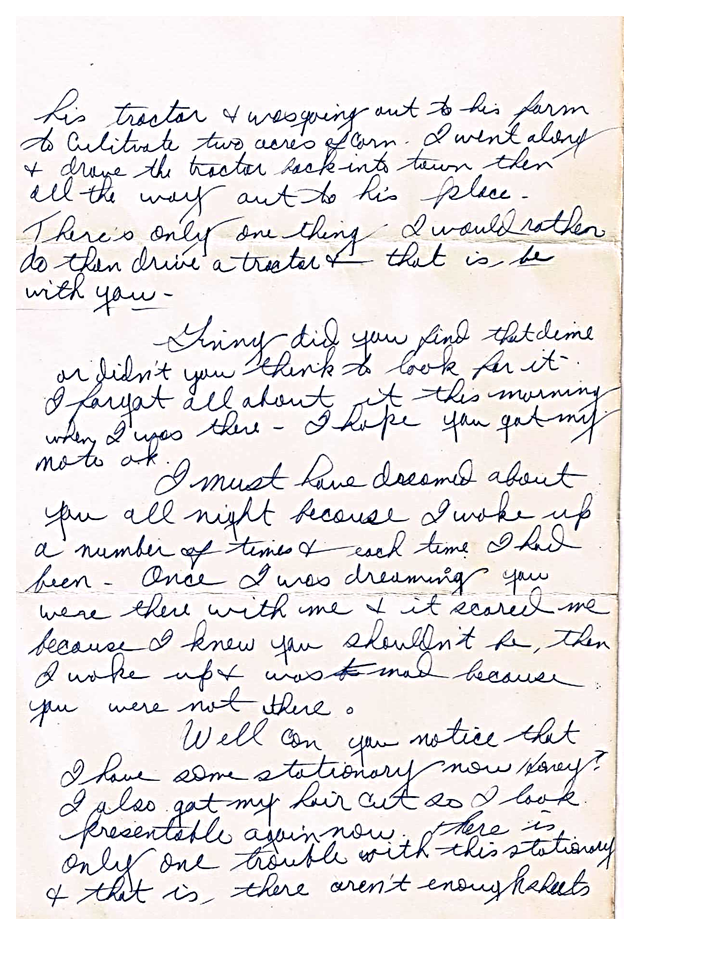 his tractor & was going out to his farm
to Culitivate two acres of corn. I went along
& drove the tractor back into town then
all the way out to his place.
There's only one thing I would rather
do then drive a tractor & that is, be
with you -
Ginny did you find that dime
or didn't you think to look for it.
I forgot all about it this morning
when I was there - I hope you got my
note ok.
I must have dreamed about
you all night because I woke up
a number of times & each time I had
been - Once I was dreaming you
were there with me & it scared me
because I knew you shouldn't be, then
I woke up & was mad because
you were not there.
Well can you notice that
I have some stationary now Honey?
I also got my hair cut so I look
presentable again now. There is
only one trouble with this stationary
& that is, there aren't enough sheets